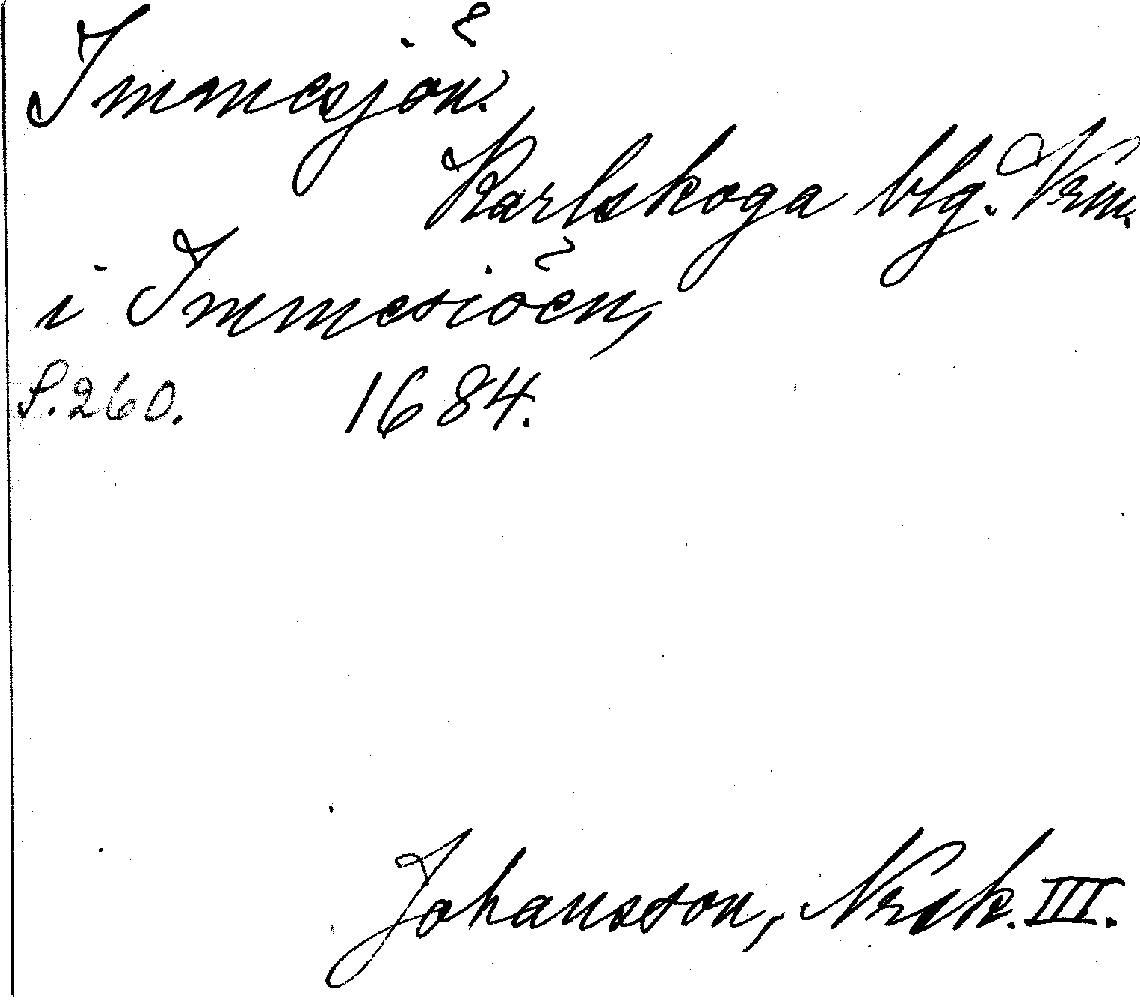 Immesjön.
Karlskoga blg. Vrm.
i Immesiöen,
S. 260. 1684.
Johansson, Norask. III.